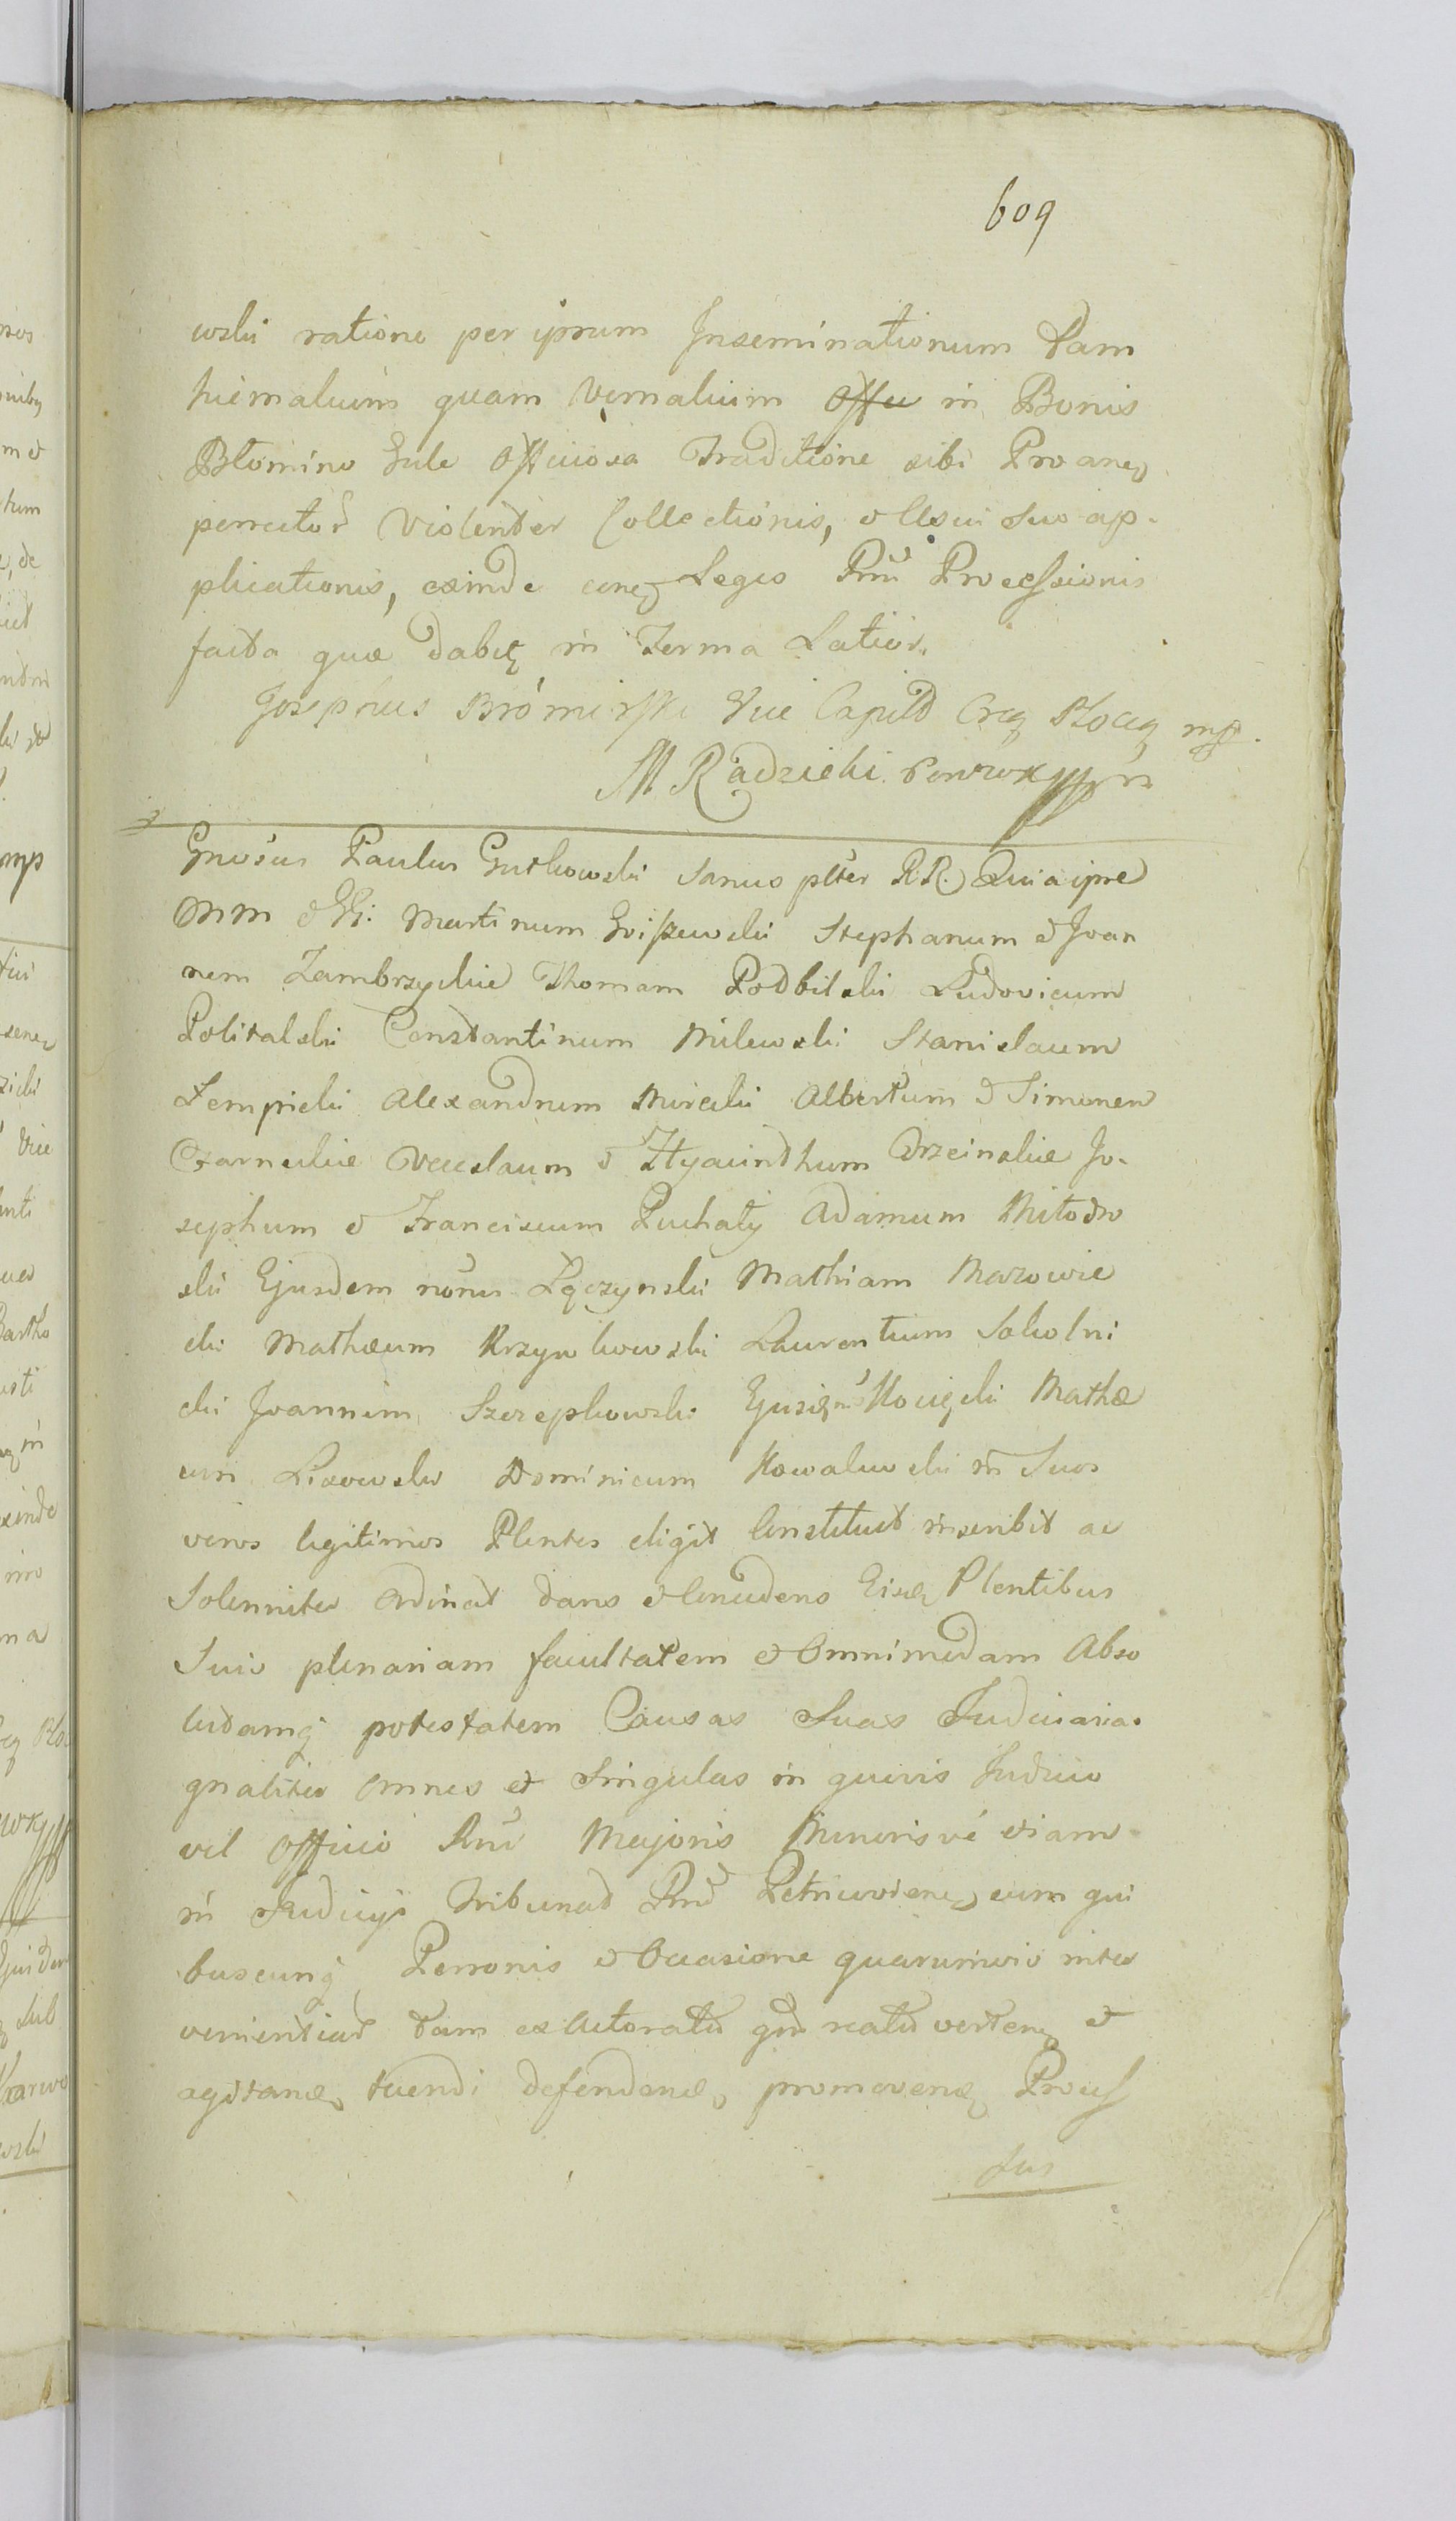 609
wski ratione per ipsum Inseminationum tam
hiemalium quam Vernalium in Bonis
Błomino Gule Officiosa Traditione sibi
Violenter Collectionis, et Usui Suo ap-
plicationis, exinde Legis Rni Processionis
facta quæ dabit in Terma Latior.
Josephus Bromirski Vice Capit Crz Plocen mp.
M Radzicki
Gnosus Paulus Gutkowski Sanus plter R.R. Quia ipse
MM et GG: Martinum Goiszewski Stephanum et Joan
nem Zambrzyckie Thomam Podbilski Ludovicum
Politalski Constantinum Milewski Stanislaum
Lempicki Alexandrum Mirecki Albertum et Simonem
Czarneckie Venceslaum et Hyacinthum Brzeinskie Jo-
sephum et Franciscum Puchały Adamum Miłodro
ski Ejusdem nonis Łączynski Mathiam Mazowie
cki Mathæum Krzywkowski Laurentium Sokolni
cki Joannem Szczepkowski Mathæ
um Lixowski Dominicum Kowalewski in Suos
veros legitimos Plentes eligit Constituit inscribit ac
Solenniter Ordinat dans et Concedens Eisde Plentibus
Suis plenariam facultatem et Omnimodam Abso
lutamq potestatem Causas Suas Judiciarias
gnaliter Omnes et Singulas in quovis Judicio
vel Officio Rni Majoris Minorisve etiam
in Judicijs Tribunat Rni Petricovien cum qui
buscunq Personis et Occasione quarumvis inter
venientiar tam ex Actoratu qm reatu verten et
agitan tuendi defenden promoven Process
sus